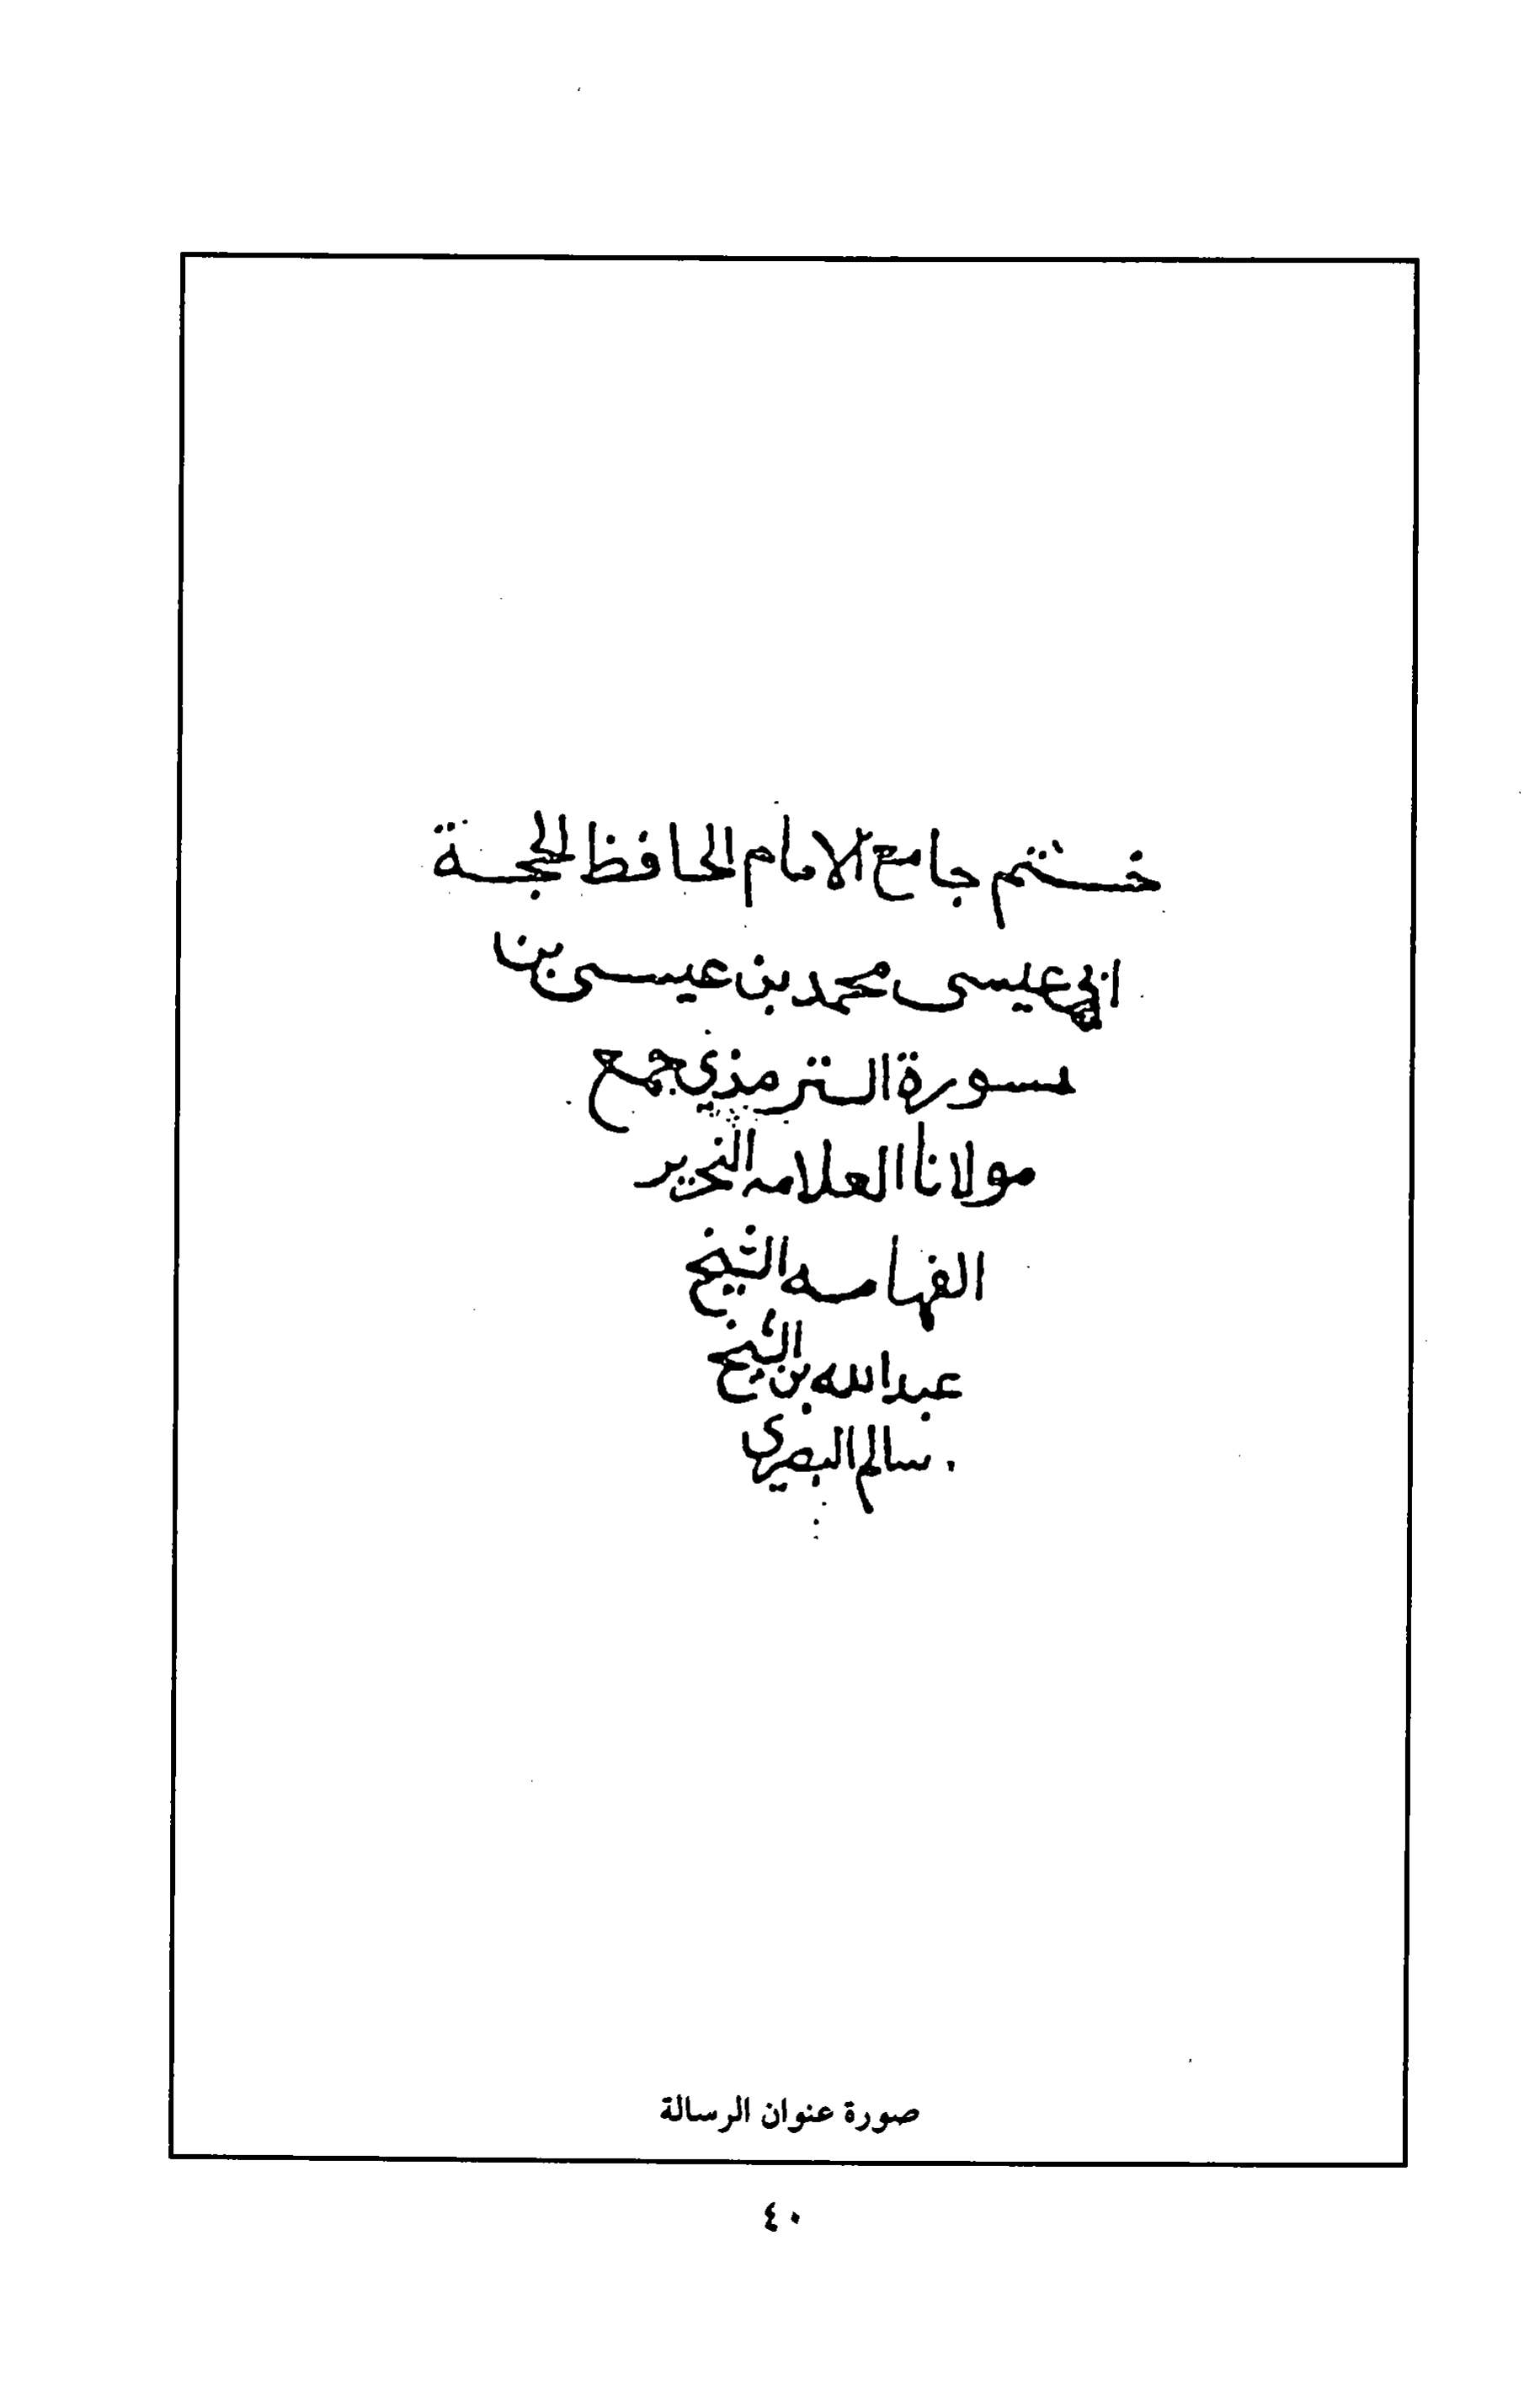 ختم جامع الامام الحافظ الحجة
ابي عيسى محمد بن عيسى بن
سورة الترمذي جمع
مولانا العلامه النحرير
الفهامه الشيخ
عبدالله بن الشيخ
سالم البصري
صورة عنوان الرسالة
٤٠